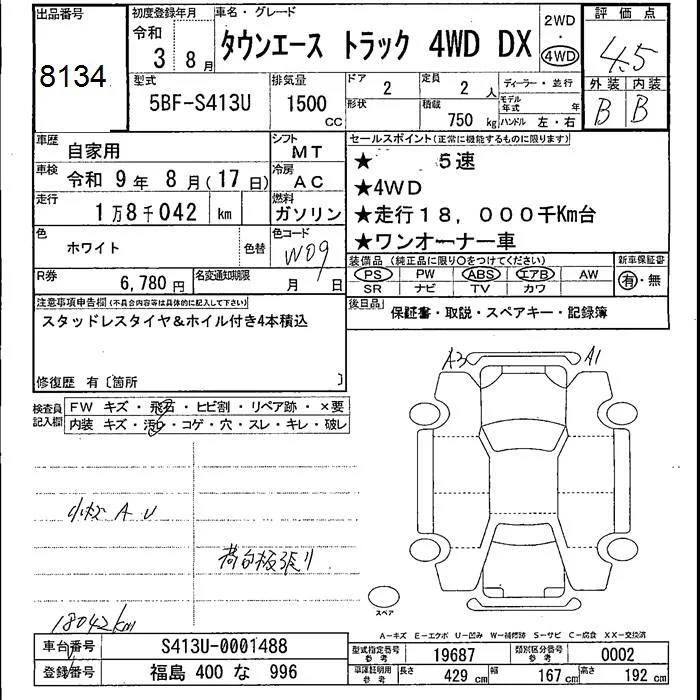 出品番号
8134
初度登録年月
令和
3 8月
車名・グレード
タウンエース トラック 4WD DX
2WD
・
4WD
評価点
4.5
外装 内装
B B
型式
5BF-S413U
排気量
1500
CC
ドア
2
定員
2 人
形状
積載
750 kg
ディーラー・並行
モデル
年式 年
ハンドル 左・右
車歴
自家用
シフト
MT
車検
令和 9年 8月(17日)
冷房
AC
走行
1万8千042 km
燃料
ガソリン
色
ホワイト
色替
色コード
W09
R券
6,780円
名変通知期限
月 日
セールスポイント(正常に機能するものに限ります)
★ 5速
★4WD
★走行18,000千Km台
★ワンオーナー車
装備品 (純正品に限り○をつけてください)
新車保証書
PS PW ABS エアB AW
SR ナビ TV カワ
有・無
後日品
保証書・取説・スペアキー・記録簿
注意事項申告欄(不具合内容等は具体的に記入して下さい)
スタッドレスタイヤ&ホイル付き4本積込
修復歴 有〔箇所 〕
検査員
記入欄
FW キズ・飛石・ヒビ割・リペア跡・×要
内装 キズ・汚れ・コゲ・穴・スレ・キレ・破レ
A3
A1
小キズ A U
荷台板張り
18042km
スペア
A-キズ E-エクボ U-凹み W-補修跡 S-サビ C-腐食 XX-交換済
車台番号
S413U-0001488
登録番号
福島 400 な 996
型式指定番号
参考
19687
類別区分番号
参考
0002
車検証明記載
参考
長さ
429 cm
幅
167 cm
高さ
192 cm